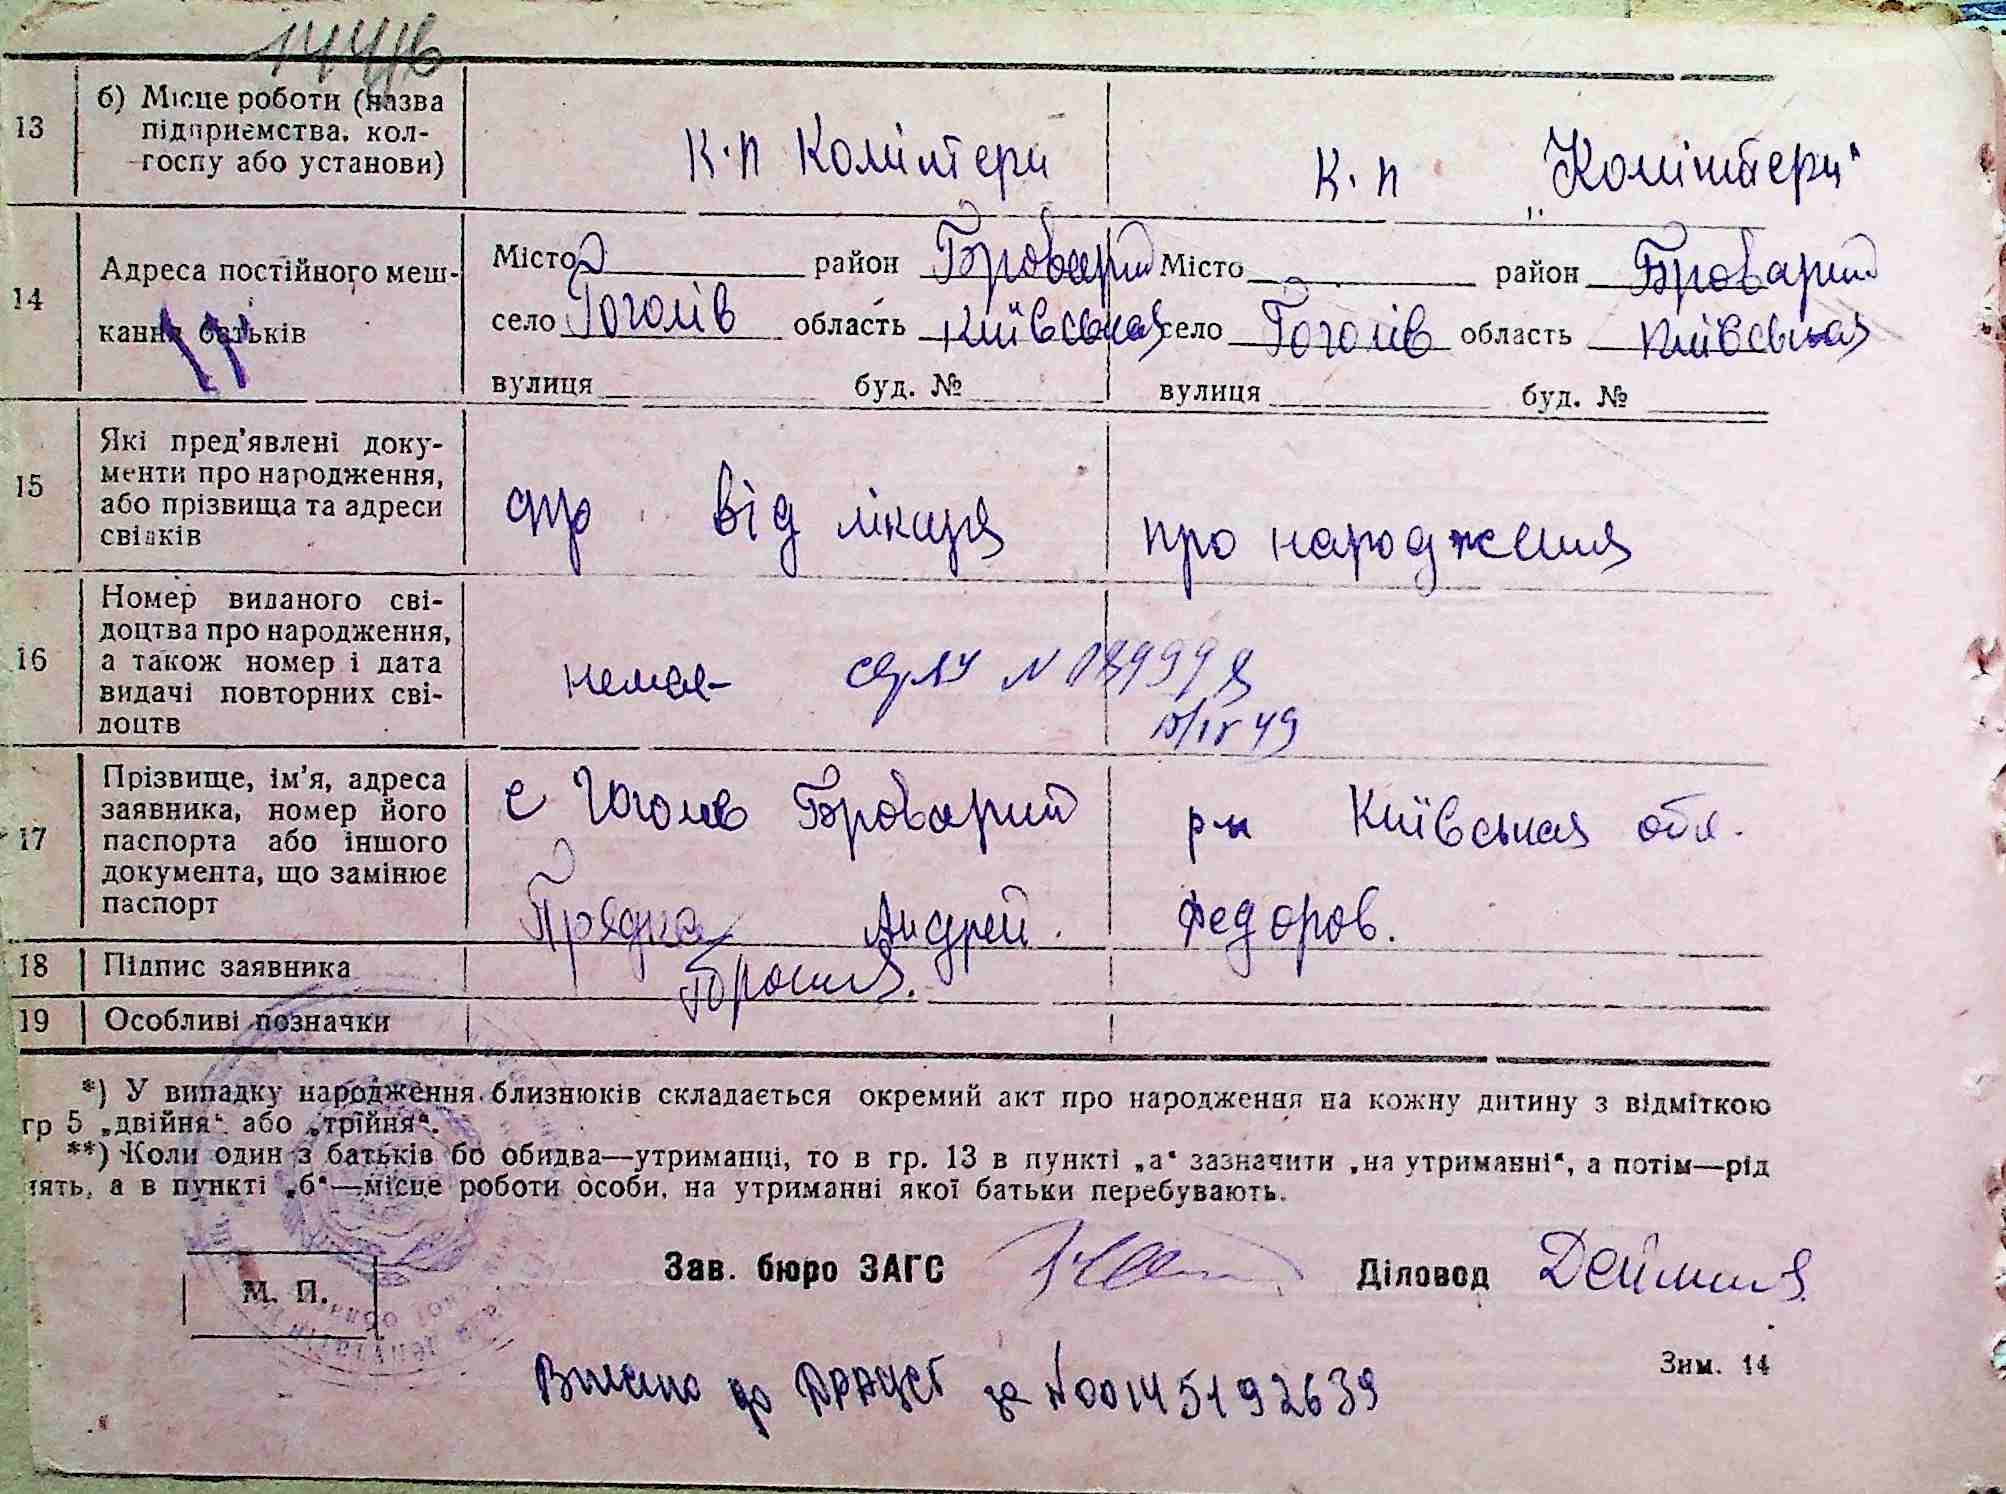 13 б) Місце роботи (назва підприємства, кол-
госпу або установи)
К.п Комінтерн К.п „Комінтерн“
14 Адреса постійного меш-
кання батьків
Місто район Броварий Місто район Броварий
село Гоголів область Київськая село Гоголів область Київськая
вулиця буд. № вулиця буд. №
15 Які пред'явлені доку-
менти про народження,
або прізвища та адреси
свідків
від лікаря про народження
16 Номер виданого сві-
доцтва про народження,
а також номер і дата
видачі повторних сві-
доцтв
немає
17 Прізвище, ім'я, адреса
заявника, номер його
паспорта або іншого
документа, що замінює
паспорт
с Гоголев Броварий р-н Київськая обл.
Прядка Андрей Федоров.
18 Підпис заявника
19 Особливі позначки
*) У випадку народження близнюків складається окремий акт про народження на кожну дитину з відміткою
гр 5 „двійня“ або „трійня“.
**) Коли один з батьків бо обидва—утриманці, то в гр. 13 в пункті „а“ зазначити „на утриманні“, а потім—рід
нять, а в пункті „б“—місце роботи особи, на утриманні якої батьки перебувають.
Зав. бюро ЗАГС Діловод
М. П.
Зим. 14
Внесено до ДРАЦСГ за №00145192639